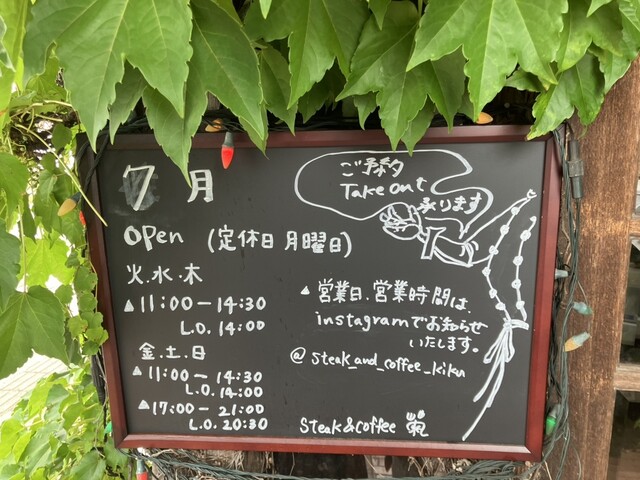 7月
ご予約
Take out
承ります
open (定休日 月曜日)
火.水.木
▲11:00-14:30
L.O. 14:00
金.土.日
▲11:00-14:30
L.O. 14:00
▲17:00-21:00
L.O. 20:30
▲営業日.営業時間は、
instagramでお知らせ
いたします。
@steak_and_coffee_kiku
Steak&coffee 菊